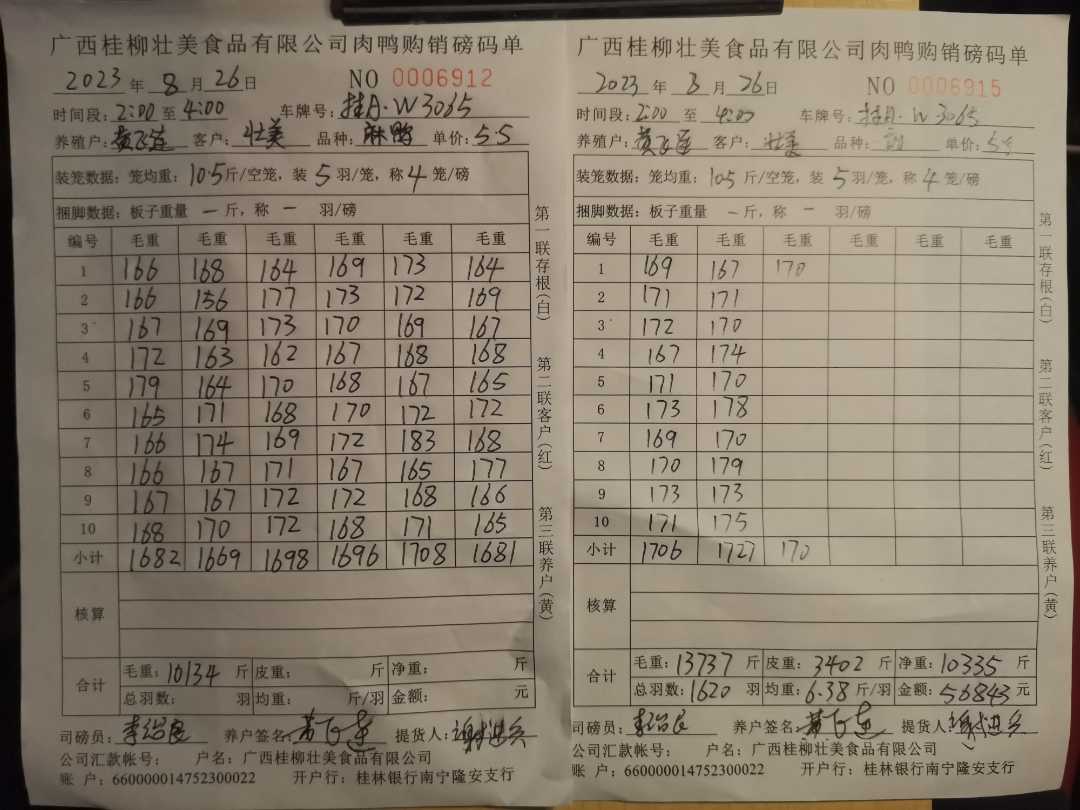 广西桂柳壮美食品有限公司肉鸭购销磅码单
2023年8月26日 NO 0006912
时间段:2:00至4:00 车牌号:桂A·W3065
养殖户:黄飞莲 客户:壮美 品种:麻鸭 单价:5.5
装笼数据:笼均重:10.5斤/空笼,装5羽/笼,称4笼/磅
捆脚数据:板子重量 一 斤,称 一 羽/磅
编号 毛重 毛重 毛重 毛重 毛重 毛重
1 166 168 164 169 173 164
2 166 156 177 173 172 169
3 167 169 173 170 169 167
4 172 163 162 167 168 168
5 179 164 170 168 167 165
6 165 171 168 170 172 172
7 166 174 169 172 183 168
8 166 167 171 167 165 177
9 167 167 172 172 168 166
10 168 170 172 168 171 165
小计 1682 1669 1698 1696 1708 1681
核算
合计 毛重:10134斤 皮重: 斤 净重: 斤
总羽数: 羽 均重: 斤/羽 金额: 元
司磅员: 养户签名: 提货人:
公司汇款帐号: 户名:广西桂柳壮美食品有限公司
账 户:660000014752300022 开户行:桂林银行南宁隆安支行
第一联存根(白) 第二联客户(红) 第三联养户(黄)
广西桂柳壮美食品有限公司肉鸭购销磅码单
2023年8月26日 NO 0006915
时间段:2:00至4:00 车牌号:桂A·W3065
养殖户:黄飞莲 客户:壮美 品种: 单价:5.5
装笼数据:笼均重:10.5斤/空笼,装5羽/笼,称4笼/磅
捆脚数据:板子重量 一 斤,称 一 羽/磅
编号 毛重 毛重 毛重 毛重 毛重 毛重
1 169 167 170
2 171 171
3 172 170
4 167 174
5 171 170
6 173 178
7 169 170
8 170 179
9 173 173
10 171 175
小计 1706 1727 170
核算
合计 毛重:13737斤 皮重:3402斤 净重:10335斤
总羽数:1620羽 均重:6.38斤/羽 金额:56843元
司磅员: 养户签名: 提货人:
公司汇款帐号: 户名:广西桂柳壮美食品有限公司
账 户:660000014752300022 开户行:桂林银行南宁隆安支行
第一联存根(白) 第二联客户(红) 第三联养户(黄)